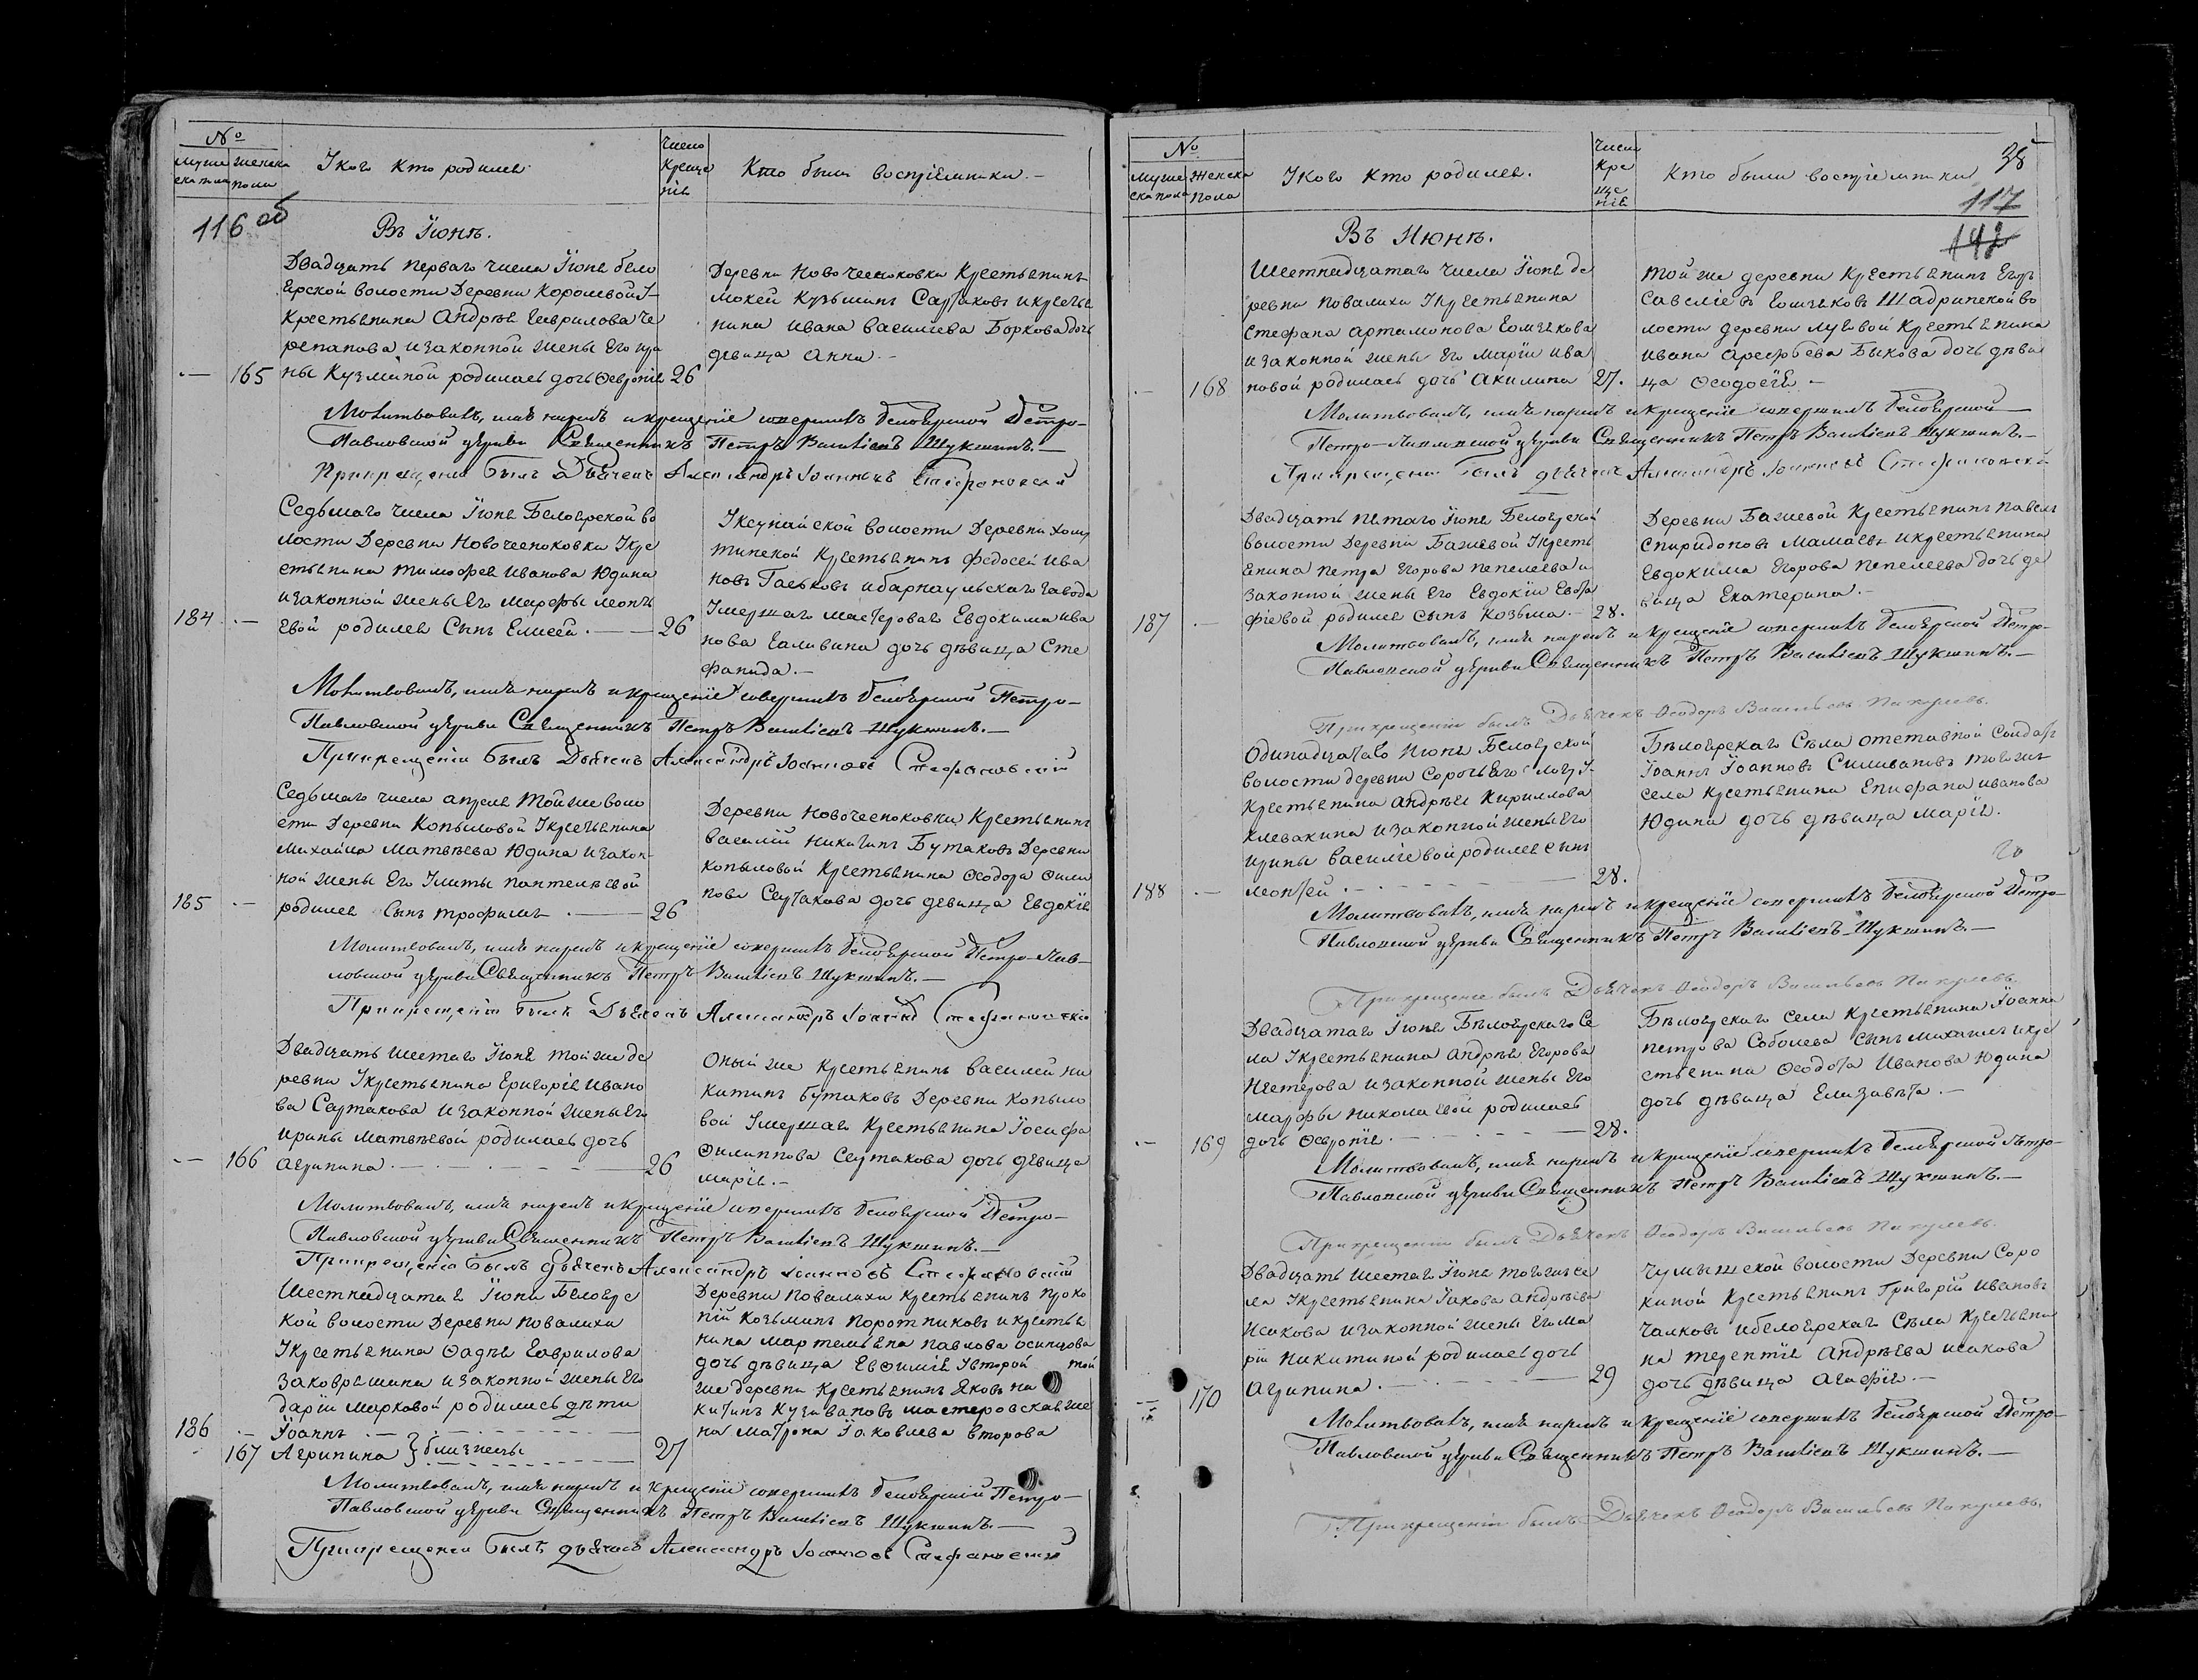 №
Мужеска пола
Женска пола
У кого кто родился
Число крещенія
Кто были воспріемники.
116 об
Въ Іюнѣ.
Двадцать перваго числа Іюня бело
ярской волости Деревни Королевой У
Крестьянина Андрѣя Гаврилова Че
репанова и законной жены Его ири
— 165 ны Кузминой родилась дочь Феvронія 26
Деревни Новочесноковки Крестьянинъ
Мокей Кузьминъ Сартаковъ и кресть
нина Ивана Василиева Боркова дочь
девица Анна.—
Молитвовалъ, имя нарекъ и крещеніе совершилъ Белоярской Петро-
Павловской церкви Священникъ Петръ Василіевъ Шукшинъ.—
При крещеніи былъ Дьячекъ Александръ Іоанновъ Стефановскій
Седьмаго числа Іюня Белоярской во
лости Деревни Новочесноковки У кре
стьянина Тимофея Иванова Юдина
и законной жены Его Марфы леонть
184 — евой родился Сынъ Елисей.— 26
Деревни
Крестьянинъ Федосей Ива
новъ Гаськовъ и барнаульскаго завода
Умершаго мастероваго Евдокима Ива
нова Саливина дочь дѣвица Сте
фанида.—
Молитвовалъ, имя нарекъ и крещеніе совершилъ Белоярской Петро-
Павловской церкви Священникъ Петръ Василіевъ Шукшинъ.—
При крещеніи былъ Дьячекъ Александръ Іоанновъ Стефановскій
Седьмаго числа апреля Той же воло
сти Деревни Копыловой У крестьянина
Михайла Матвѣева Юдина и закон
ной жены Его Улиты пантелѣевой
185 — родился Сынъ трофимъ.— 26
Деревни Новочесноковки Крестьянинъ
василій Никитинъ Бутаковъ Деревни
Копыловой Крестьянина Феодора Фили
пова Сартакова дочь девица Евдокія
Молитвовалъ, имя нарекъ и крещеніе совершилъ Белоярской Петро-Пав-
ловской церкви Священникъ Петръ Василіевъ Шукшинъ.—
При крещеніи былъ Дьячекъ Александръ Іоанновъ Стефановскій
Двадцать шестаго Іюня той же де
ревни У крестьянина Григорія Ивано
ва Сартакова и законной жены Его
ирины Матвѣевой родилась дочь
— 166 Агрипина.— 26
Оный же Крестьянинъ василей ни
китинъ Бутаковъ Деревни Копыло
вой Умершаго Крестьянина Іосифа
Филиппова Сартакова дочь девица
Марія.—
Молитвовалъ, имя нарекъ и крещеніе совершилъ Белоярской Петро-
Павловской церкви Священникъ Петръ Василіевъ Шукшинъ.—
При крещеніи былъ дьячекъ Александръ Іоанновъ Стефановскій
Шестнадцатаго Іюня Белоярс
кой волости Деревни повалихи
У крестьянина Фадѣя Гаврилова
Заковряшина и законной жены Его
дарьи Марковой родились дѣти
186 — Іоаннъ
167 Агрипина } близнецы 27
Деревни повалихи крестьянинъ проко
пій Козьминъ поротниковъ и крестья
нина мартемьяна павлова осипцова
дочь дѣвица Евфимія Уvторой той
же деревни крестьянинъ Яковъ ни
китинъ Кузивановъ мастеровская же
на Матрона Іаковлева второва
Молитвовалъ, имя нарекъ и крещеніе совершилъ Белоярской Петро-
Павловской церкви Священникъ Петръ Василіевъ Шукшинъ.—
При крещеніи былъ дьячекъ Александръ Іоанновъ Стефановскій
№
Мужеска пола
Женска пола
У кого кто родился.
Число крещенія
Кто были воспріемники
38
117
142
Въ Июнѣ.
Шестнадцатаго числа Іюня де
ревни повалихи У крестьянина
Стефана Артамонова Гомзякова
и законной жены Его Маріи ива
— 168 новой родилась дочь Акилина 27.
той же деревни Крестьянинъ Егоръ
Савеліевъ Гомзяковъ Шадринской во
лости деревни луговой Крестьянина
ивана Арефьева Быкова дочь дѣви
ца Феодосія.—
Молитвовалъ, имя нарекъ и крещеніе совершилъ Белоярской
Петро-Павловской церкви Священникъ Петръ Василіевъ Шукшинъ.—
При крещеніи былъ дьячекъ Александръ Іоанновъ Стефановскій
Двадцать пятаго Іюня Белоярской
волости Деревни Бажевой У кресть
янина петра Егорова пепелева и
законной жены Его Евдокіи Евста
187 — фіевой родился сынъ Козьма.— 28.
Деревни Бажевой Крестьянинъ павелъ
спиридоновъ Мамаевъ и крестьянина
Евдокима Егорова пепелева дочь де
вица Екатерина.—
Молитвовалъ, имя нарекъ и крещеніе совершилъ Белоярской Петро-
Павловской церкви Священникъ Петръ Василіевъ Шукшинъ.—
При крещеніи былъ Дьячекъ Феодоръ Васильевъ
Одинадцатаго Июня Белоярской
волости деревни Сорочьего логу У
Крестьянина Андрѣя Кириллова
Клевакина и законной жены Его
ирины василіевой родился сынъ
188 — леонтей.— 28.
Бѣлоярскаго Сѣла отставной солдатъ
Іоаннъ Іоанновъ Силивановъ того же
села крестьянина Епифана иванова
Юдина дочь дѣвица Марія.
Молитвовалъ, имя нарекъ и крещеніе совершилъ Белоярской Петро-
Павловской церкви Священникъ Петръ Василіевъ Шукшинъ.—
При крещеніи былъ Дьячекъ Феодоръ Васильевъ
Двадцатаго Іюня Бѣлоярскаго Се
ла У крестьянина Андрѣя Егорова
Нестерова и законной жены Его
Марфы николаевой родилась
— 169 дочь Феvронія.— 28.
Бѣлоярскаго села крестьянина Іоанна
петрова Соболева сынъ михаилъ и кре
стьянина Феодота Иванова Юдина
дочь дѣвица Елизавѣта.—
Молитвовалъ, имя нарекъ и крещеніе совершилъ Белоярской Петро-
Павловской церкви Священникъ Петръ Василіевъ Шукшинъ.—
При крещеніи былъ Дьячекъ Феодоръ Васильевъ
Двадцать шестаго Іюня того же се
ла У крестьянина Іакова Андрѣева
Исакова и законной жены Его Ма
ріи никитиной родилась дочь
— 170 Агрипина.— 29
Чумышской волости Деревни Соро
киной Крестьянинъ Григорій Ивановъ
Чалковъ и белоярскаго Сѣла крестьяни
на терентія Андрѣева исакова
дочь дѣвица Агафія.—
Молитвовалъ, имя нарекъ и крещеніе совершилъ Белоярской Петро-
Павловской церкви Священникъ Петръ Василіевъ Шукшинъ.—
При крещеніи былъ Дьячекъ Феодоръ Васильевъ